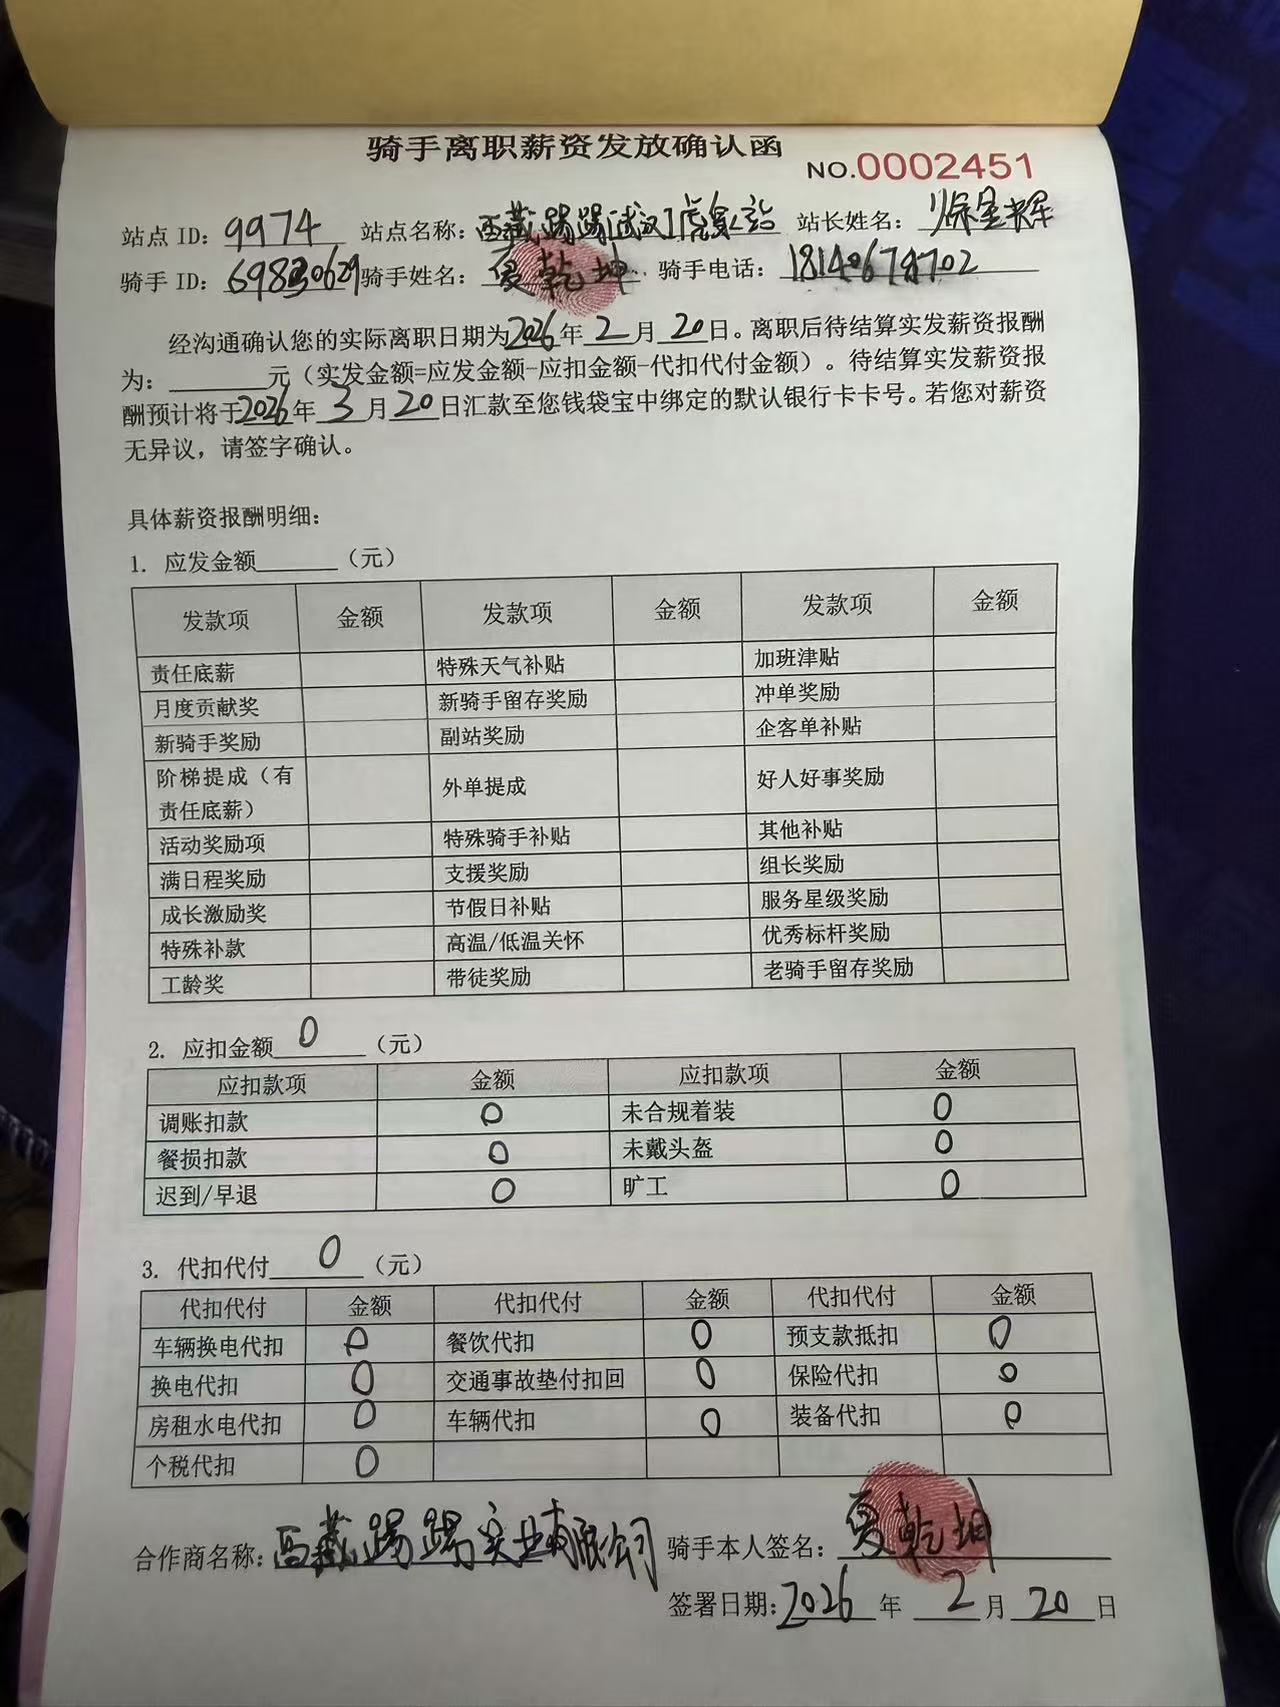 骑手离职薪资发放确认函
NO.0002451
站点 ID: 9974 站点名称: 西藏踢踢[武汉] 站长姓名: 徐金辉
骑手 ID: 69830629 骑手姓名: 夏乾坤 骑手电话: 18140678702
经沟通确认您的实际离职日期为2026年2月20日。离职后待结算实发薪资报酬
为: 元（实发金额=应发金额-应扣金额-代扣代付金额）。待结算实发薪资报
酬预计将于2026年3月20日汇款至您钱袋宝中绑定的默认银行卡卡号。若您对薪资
无异议，请签字确认。
具体薪资报酬明细：
1. 应发金额 （元）
发款项 金额 发款项 金额 发款项 金额
责任底薪 特殊天气补贴 加班津贴
月度贡献奖 新骑手留存奖励 冲单奖励
新骑手奖励 副站奖励 企客单补贴
阶梯提成（有责任底薪） 外单提成 好人好事奖励
活动奖励项 特殊骑手补贴 其他补贴
满日程奖励 支援奖励 组长奖励
成长激励奖 节假日补贴 服务星级奖励
特殊补款 高温/低温关怀 优秀标杆奖励
工龄奖 带徒奖励 老骑手留存奖励
2. 应扣金额 0 （元）
应扣款项 金额 应扣款项 金额
调账扣款 0 未合规着装 0
餐损扣款 0 未戴头盔 0
迟到/早退 0 旷工 0
3. 代扣代付 0 （元）
代扣代付 金额 代扣代付 金额 代扣代付 金额
车辆换电代扣 0 餐饮代扣 0 预支款抵扣 0
换电代扣 0 交通事故垫付扣回 0 保险代扣 0
房租水电代扣 0 车辆代扣 0 装备代扣 0
个税代扣 0
合作商名称: 西藏踢踢实业有限公司 骑手本人签名: 夏乾坤
签署日期: 2026 年 2 月 20 日